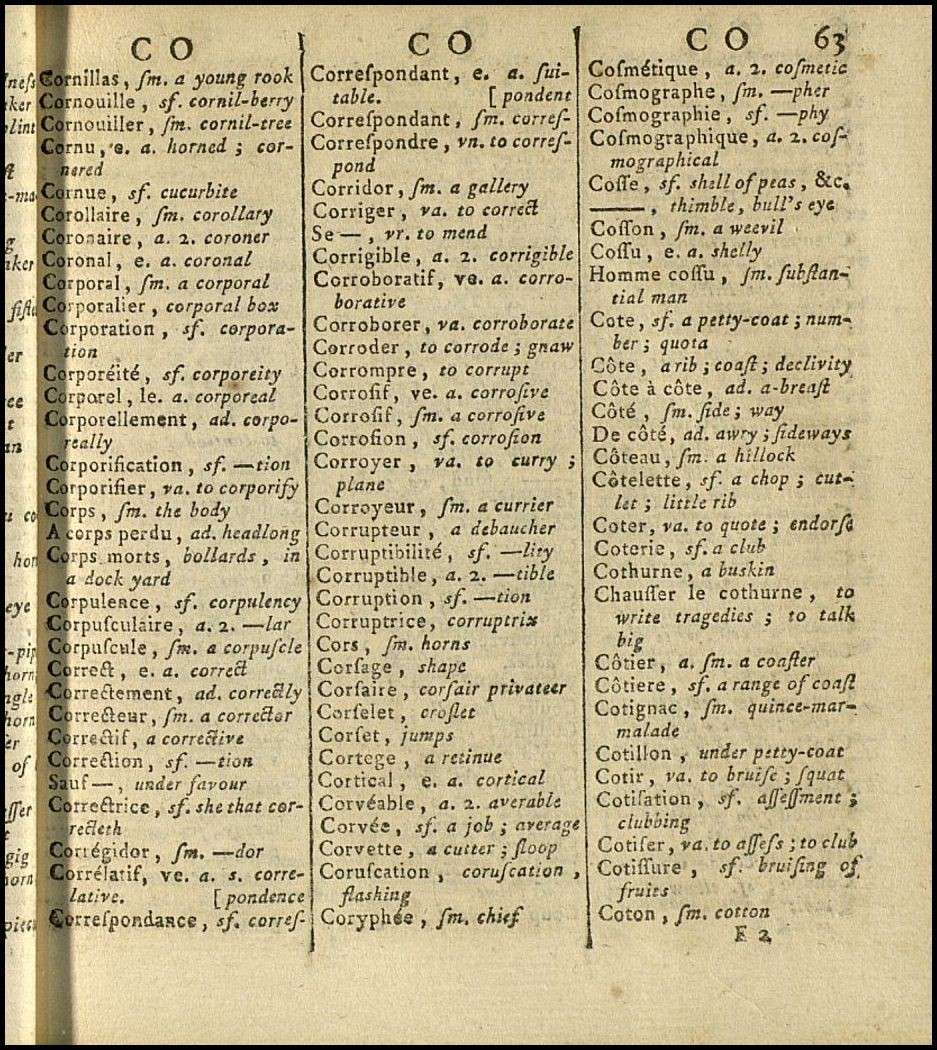 C O
Cornillas, ſm. a young rook
Cornouille, sf. cornil-berry
Cornouiller, ſm. cornil-tree
Cornu, e. a. horned ; cor-
nered
Cornue, sf. cucurbite
Corollaire, ſm. corollary
Coronaire, a. 2. coroner
Coronal, e. a. coronal
Corporal, ſm. a corporal
Corporalier, corporal box
Corporation, sf. corpora-
tion
Corporéité, sf. corporeity
Corporel, le. a. corporeal
Corporellement, ad. corpo-
really
Corporification, sf. —tion
Corporifier, va. to corporify
Corps, ſm. the body
A corps perdu, ad. headlong
Corps morts, bollards, in
a dock yard
Corpulence, sf. corpulency
Corpuſculaire, a. 2. —lar
Corpuſcule, ſm. a corpuſcle
Correct, e. a. correct
Correctement, ad. correctly
Correcteur, ſm. a corrector
Correctif, a corrective
Correction, sf. —tion
Sauf —, under favour
Correctrice, sf. she that cor-
recteth
Corrégidor, ſm. —dor
Corrélatif, ve. a. s. corre-
lative. [pondence
Correſpondance, sf. correſ-
C O
Correſpondant, e. a. ſui-
table. [pondent
Correſpondant, ſm. correſ-
Correſpondre, vn. to correſ-
pond
Corridor, ſm. a gallery
Corriger, va. to correct
Se —, vr. to mend
Corrigible, a. 2. corrigible
Corroboratif, ve. a. corro-
borative
Corroborer, va. corroborate
Corroder, to corrode ; gnaw
Corrompre, to corrupt
Corroſif, ve. a. corroſive
Corroſif, ſm. a corroſive
Corroſion, sf. corroſion
Corroyer, va. to curry ;
plane
Corroyeur, ſm. a currier
Corrupteur, a debaucher
Corruptibilité, sf. —lity
Corruptible, a. 2. —tible
Corruption, sf. —tion
Corruptrice, corruptrix
Cors, ſm. horns
Corſage, shape
Corſaire, corſair privateer
Corſelet, croſlet
Corſet, jumps
Cortege, a retinue
Cortical, e. a. cortical
Corvéable, a. 2. averable
Corvée, sf. a job ; average
Corvette, a cutter ; ſloop
Coruſcation, coruſcation,
flashing
Coryphée, ſm. chief
C O 63
Coſmétique, a. 2. coſmetic
Coſmographe, ſm. —pher
Coſmographie, sf. —phy
Coſmographique, a. 2. coſ-
mographical
Coſſe, sf. shell of peas, &c.
——, thimble, bull's eye
Coſſon, ſm. a weevil
Coſſu, e. a. shelly
Homme coſſu, ſm. ſubſtan-
tial man
Cote, sf. a petty-coat ; num-
ber ; quota
Côte, a rib ; coaſt ; declivity
Côte à côte, ad. a-breaſt
Côté, ſm. ſide ; way
De côté, ad. awry ; ſideways
Côteau, ſm. a hillock
Côtelette, sf. a chop ; cut-
let ; little rib
Coter, va. to quote ; endorſe
Coterie, sf. a club
Cothurne, a buskin
Chauſſer le cothurne, to
write tragedies ; to talk
big
Côtier, a. ſm. a coaſter
Côtiere, sf. a range of coaſt
Cotignac, ſm. quince-mar-
malade
Cotillon, under petty-coat
Cotir, va. to bruiſe ; ſquat
Cotiſation, sf. aſſeſſment ;
clubbing
Cotiſer, va. to aſſeſs ; to club
Cotiſſure, sf. bruiſing of
fruits
Coton, ſm. cotton
F 2